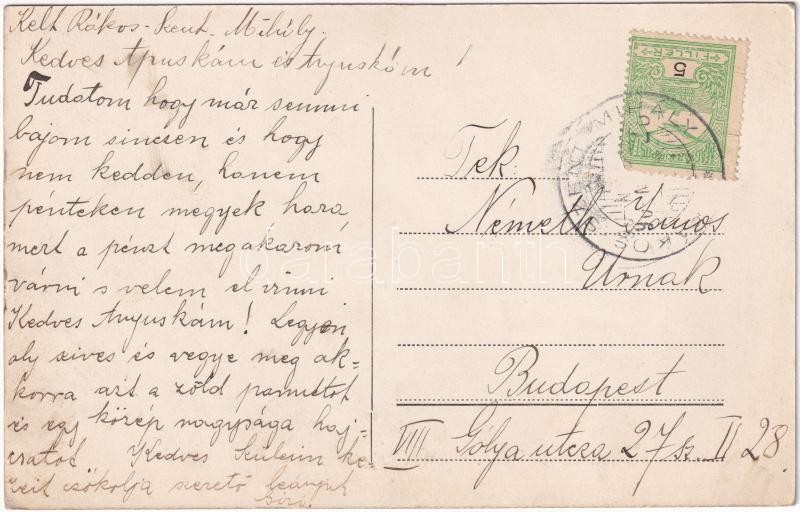 Kelt Rákos-Szent-Mihály.
Kedves Apuskám és Anyuskám!
Tudatom hogy már semmi
bajom sincsen és hogy
nem kedden, hanem
pénteken megyek haza
mert a pénzt megakarom
várni s velem el vinni
Kedves Anyuskám! Legyen
oly szives és vegye meg ak-
korra azt a zöld pamutot
és egy közép nagysága haj-
csatot. Kedves Szüleim ke-
zeit csókolja szerető leányuk
FILLÉR
5
SZENT MIHÁLY
RÁKOS
Tek.
Németh János
Urnak
Budapest
VIII Gólya utcza 27 sz. II 28.
darabanth